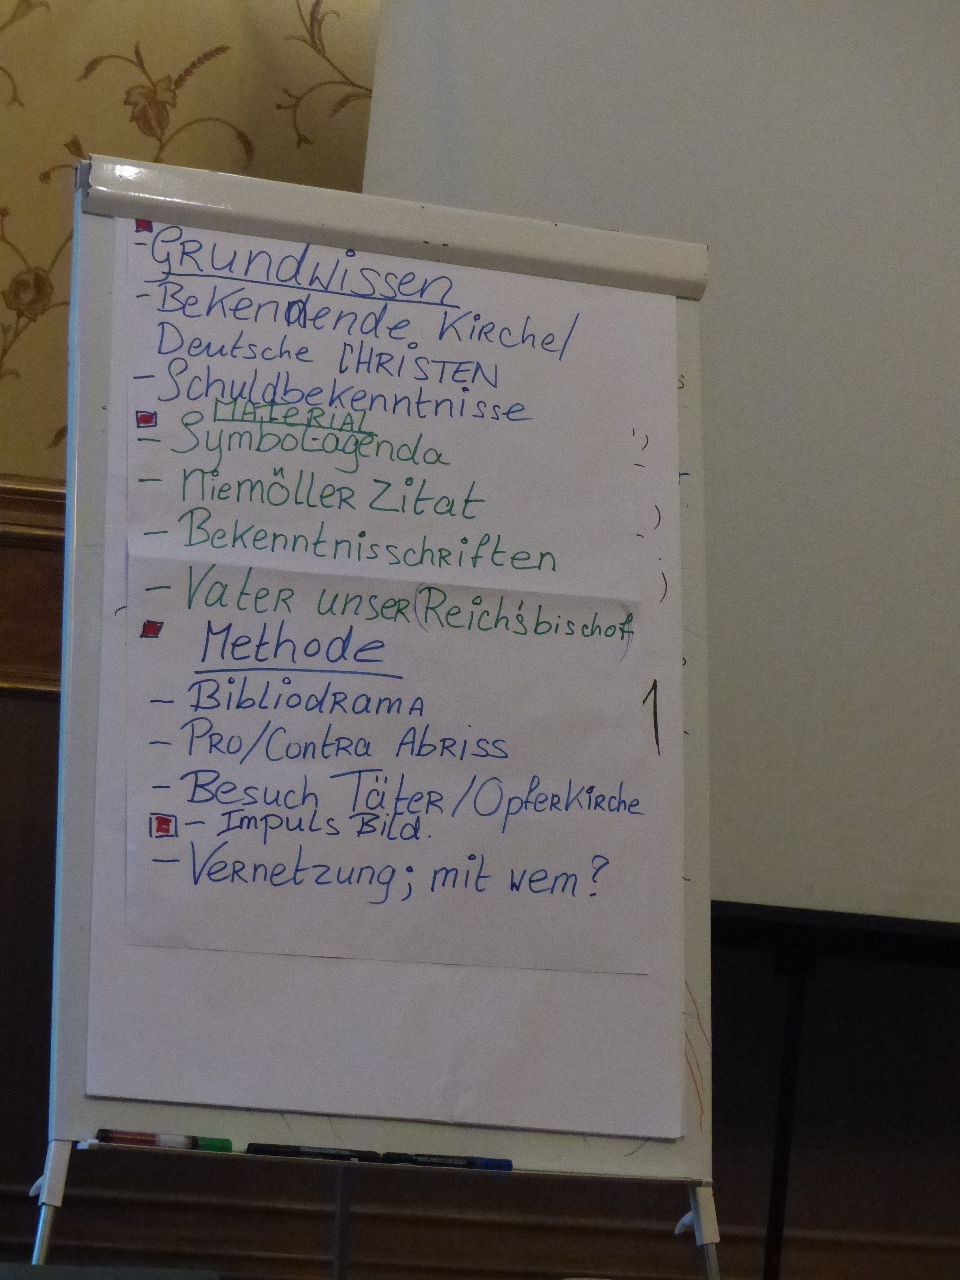 - Grundwissen
- Bekennende Kirche/
Deutsche CHRISTEN
- Schuldbekenntnisse
MATERIAL
- Symbol-agenda
- Niemöller Zitat
- Bekenntnisschriften
- Vater unser (Reichsbischof)
Methode
- Bibliodrama
- Pro/Contra Abriss
- Besuch Täter/Opferkirche
- Impuls Bild.
- Vernetzung; mit wem?
1